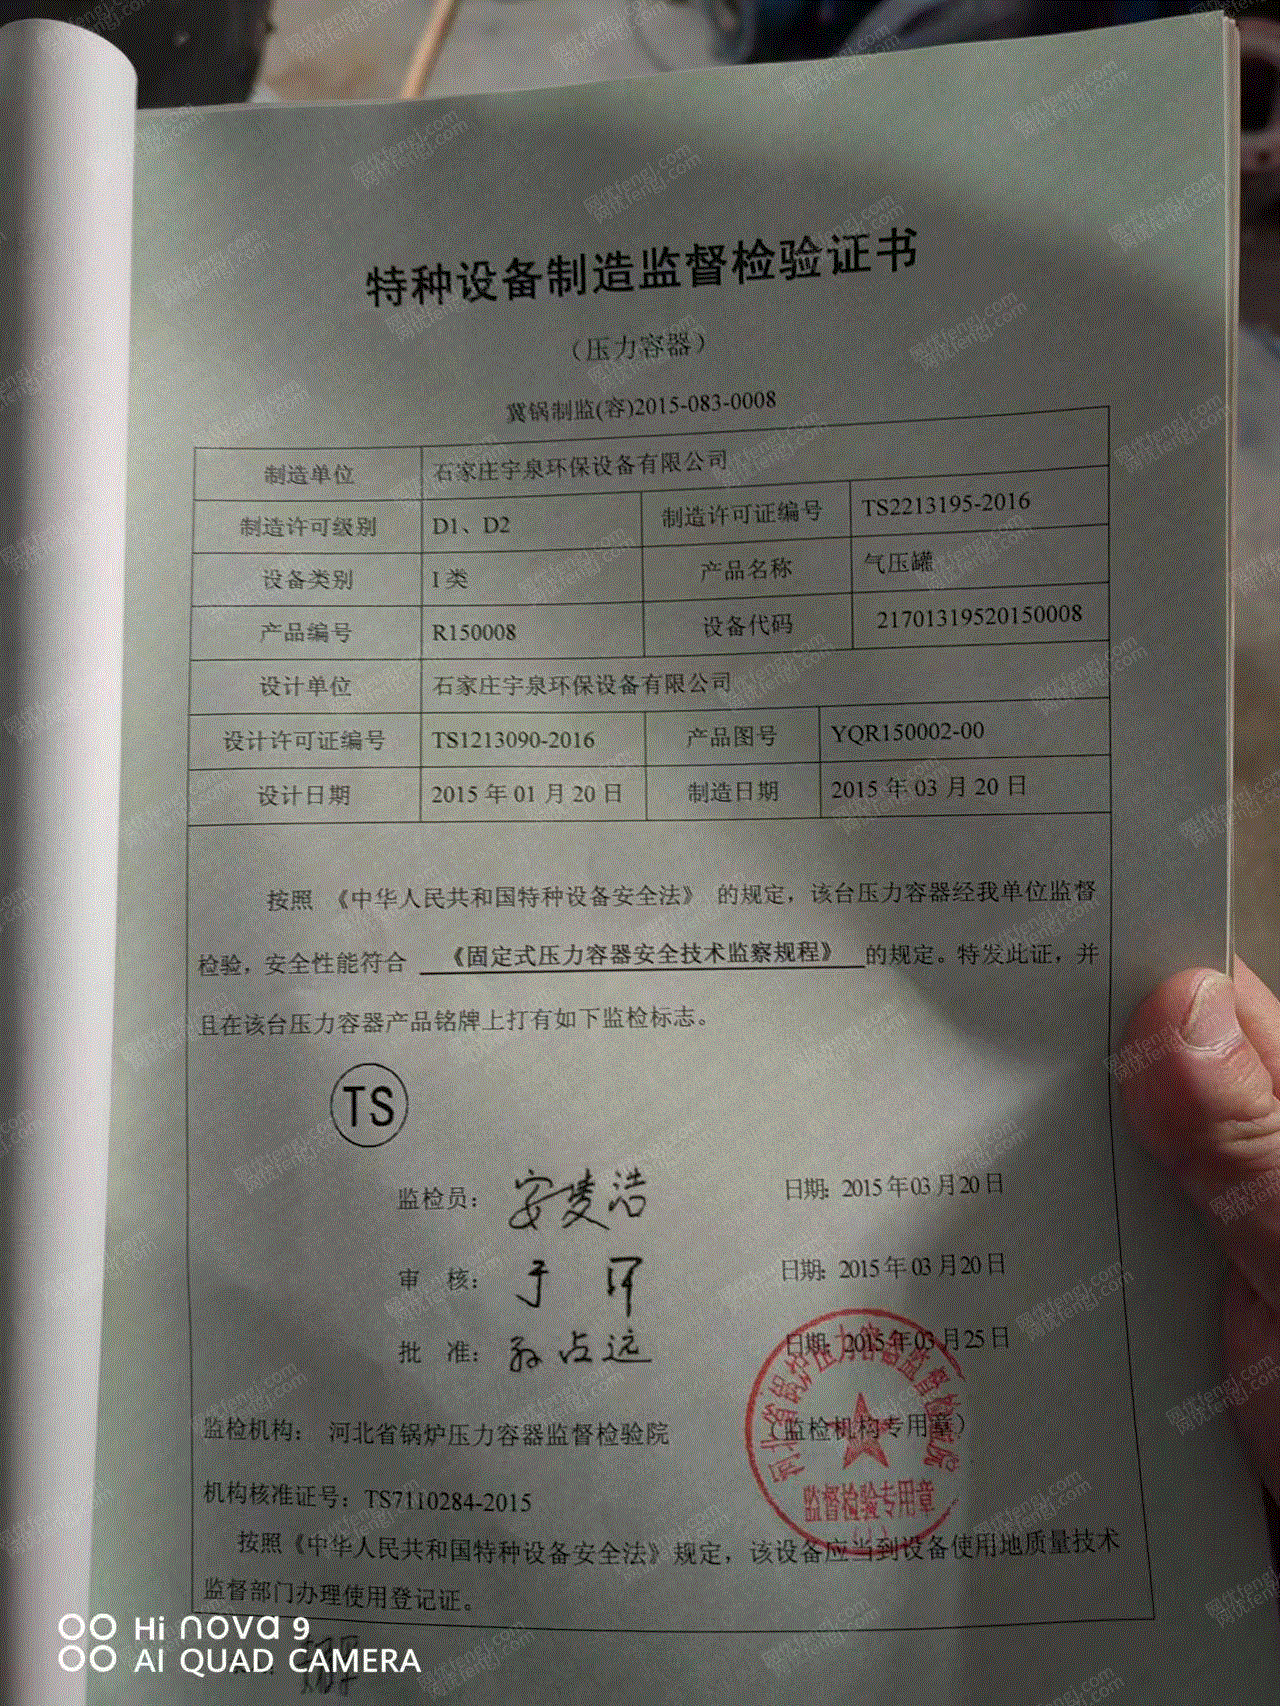 特种设备制造监督检验证书
（压力容器）
冀锅制监(容)2015-083-0008
制造单位 石家庄宇泉环保设备有限公司
制造许可级别 D1、D2 制造许可证编号 TS2213195-2016
设备类别 I 类 产品名称 气压罐
产品编号 R150008 设备代码 21701319520150008
设计单位 石家庄宇泉环保设备有限公司
设计许可证编号 TS1213090-2016 产品图号 YQR150002-00
设计日期 2015 年 01 月 20 日 制造日期 2015 年 03 月 20 日
按照 《中华人民共和国特种设备安全法》 的规定，该台压力容器经我单位监督
检验，安全性能符合 《固定式压力容器安全技术监察规程》 的规定。特发此证，并
且在该台压力容器产品铭牌上打有如下监检标志。
TS
监检员： 安凌浩 日期: 2015 年 03 月 20 日
审 核： 于 日期: 2015 年 03 月 20 日
批 准： 孙占远 日期: 2015 年 03 月 25 日
监检机构： 河北省锅炉压力容器监督检验院 （监检机构专用章）
河北省锅炉压力容器监督检验院
监督检验专用章
机构核准证号：TS7110284-2015
按照《中华人民共和国特种设备安全法》规定，该设备应当到设备使用地质量技术
监督部门办理使用登记证。
Hi nova 9
AI QUAD CAMERA
网优fengj.com